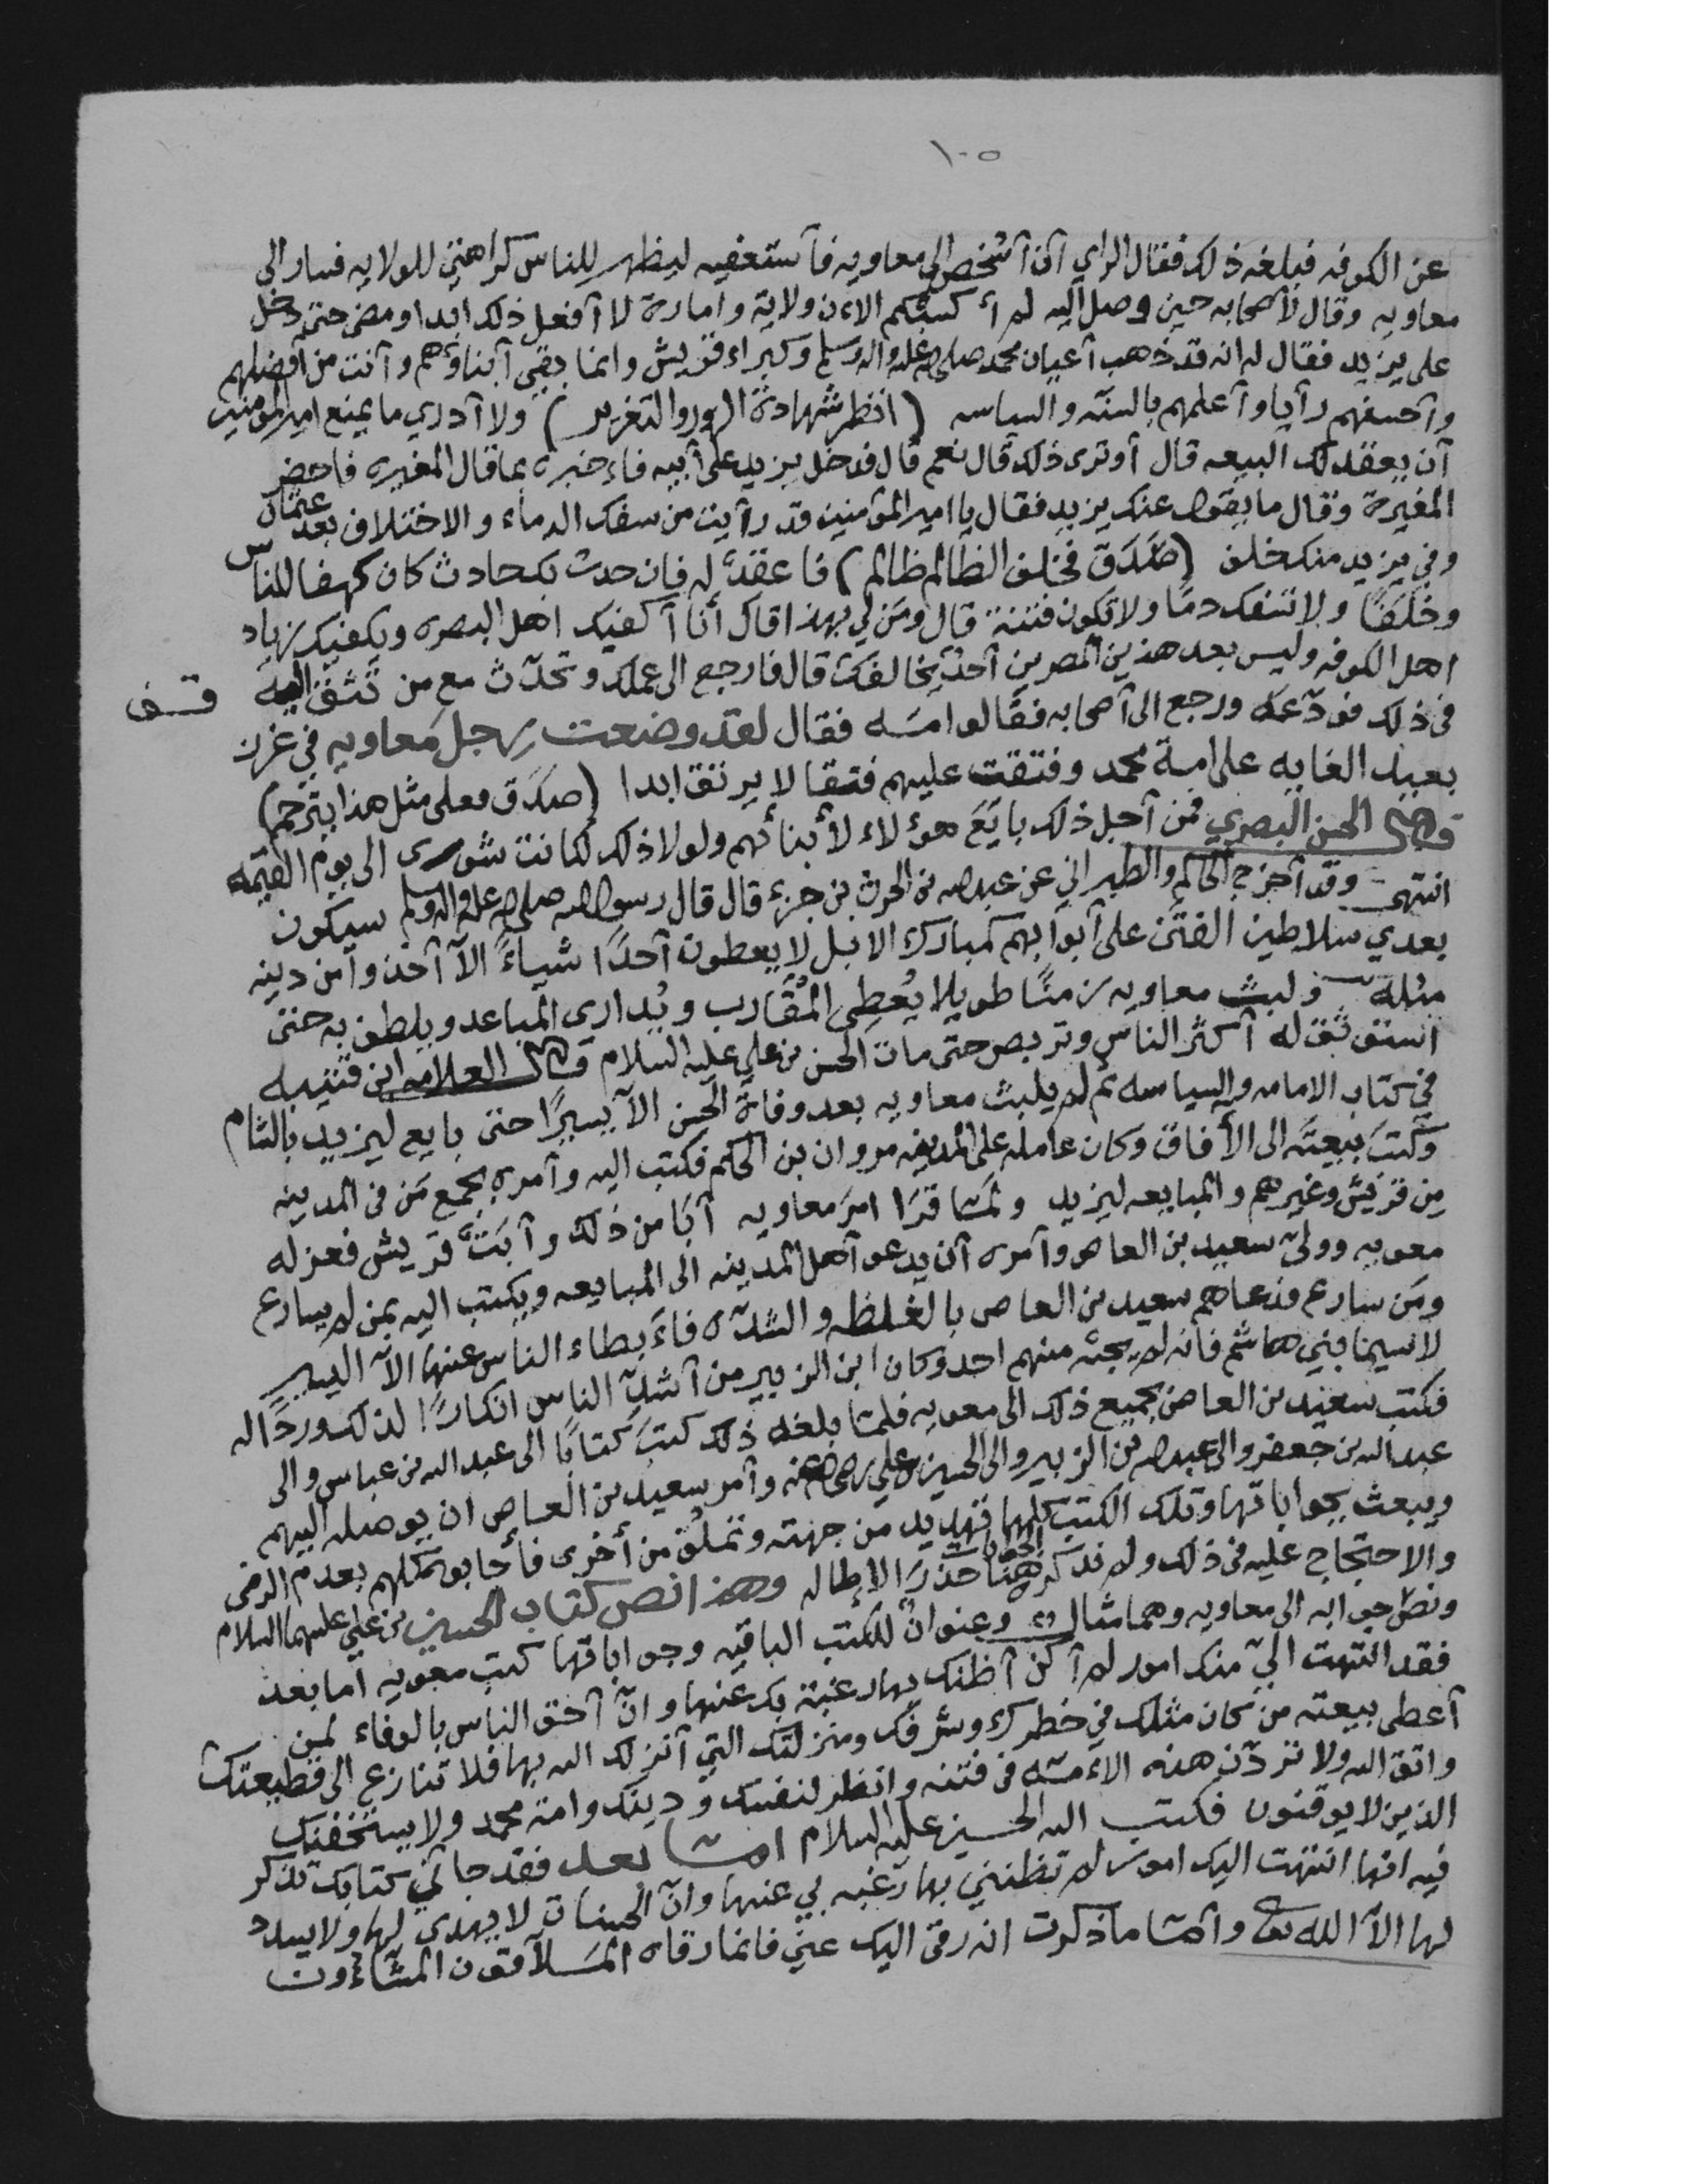 ١٠٥
عن الكوفه فبلغه ذلك فقال الراي آن آشخص الى معاويه فآستعفيه ليظهر للناس كراهتي للولايه فسار الى
معاويه وقال لأصحابه حين وصل اليه لم أكسبكم الاءن ولاية وامارة لا آفعل ذلك ابدا ومضى حتى دخل
على يزيد فقال له انه قد ذهب آعيان محمد صلى الله عليه واله وسلم وكبراء قريش وانما بقي آبناؤهم وآنت من آفضلهم
وآحسنهم رآيا وآعلمهم بالسنه والسياسه (انظر شهادة الزور والتغرير) ولا آدري ما يمنع امير المؤمنين
آن يعقد لك البيعه قال آوترى ذلك قال نعم قال فدخل يزيد على آبيه فاءخبره بما قال المغيره فاحضر
المغيرة وقال ما يقول عنك يزيد فقال يا امير المؤمنين قد رآيت من سفك الدماء والاختلاف بعد عثمان
وفي يزيد منك خلف (صَدَق فخلف الظالم ظالم) فاعقد له فان حدث بك حادث كان كهفا للناس
وخلفًا ولا تسفك دمًا ولا تكون فتنة قال ومَن لي بهذا قال أنا آكفيك اهل البصره ويكفيك زياد
اهل الكوفه وليس بعد هذين المصرين آحدٌ يخالفك قال فارجع الى عملك وتحدّث مع من تَثق اليه قف
في ذلك فودّعَه ورجع الى آصحابه فقالوا مَه فقال لقد وضعت رجل معاويه في غرز
بعيد الغايه على امة محمد وفتقت عليهم فتقا لا يرتق ابدا (صَدَق فعلى مثل هذا يترحم)
قال الحسن البصري فمن آجل ذلك بايَعَ هوءلاء لأبنائهم ولولا ذلك لكانت شورى الى يوم القيمه
انتهى وقد آخرج الحاكم والطبراني عن عبدالله بن الحرث بن جزء قال قال رسول الله صلى الله عليه واله وسلم سيكون
بعدي سلاطين الفتَن على آبوابهم كمبارك الابل لا يعطون آحدًا شياءً الآ آخذوا من دينه
مثله ولبث معاويه زمنًا طويلا يُعطِى المُقارب ويُدارى المباعد ويلطف به حتى
استوثق له آكثر الناس وتربص حتى مات الحسن بن علي عليه السلام قال العلامه ابن قتيبه
في كتاب الامامه والسياسه ثم لم يلبث معاويه بعد وفاة الحسن الآ يسيرًا حتى بايع ليزيد بالشام
وكتبَ ببيعته الى الأفاق وكان عامله على المدينه مروان بن الحكم فكتب اليه وآمره بجمع مَن في المدينه
مِن قريش وغيرهم والمبايعه ليزيد ولمّا قرَا امرَ معاويه آبَا من ذلك وآبَتْ قريش فعزله
معويه وولىّ سعيد بن العاص وآمره آن يدعو آهل المدينه الى المبايعه ويكتب اليه بمن لم يسارع
ومَن سارع فدعاهم سعيد بن العاص بالغلظه والشدّه فاءَبطاء الناس عنها الآ اليسير
لاسيما بني هاشم فانه لم يجبْه منهم احد وكان ابن الزبير من آشدّ الناس انكارًا لذلك وردًا له
فكتب سعيد بن العاص بجميع ذلك الى معويه فلمّا بلغه ذلك كتبَ كتابًا الى عبد الله بن عباس والى
عبدالله بن جعفر والى عبدالله بن الزبير والى الحسين بن علي رضي الله عنه وآمر سعيد بن العاص ان يوصله اليهم
ويبعث بجواباتها وتلك الكتب كلها تهديد من جهته وتملُق من أخرى فأجابو كلهم بعدم الرضى
والاحتجاج عليه في ذلك ولم نذكر هنا الجوابات حذرَ الإطاله وهذا نص كتاب الحسين بن علي عليهما السلام
ونصّ جوابه الى معاويه وهما مثال وعنوانٌ للكتب الباقيه وجواباتها كتب معويه اما بعد
فقد انتهت اليّ منك امور لم آكن آظنك بها رغبة بك عنها وانّ آحق الناس بالوفاء لمن
آعطى بيعته من كان مثلك في خطرك وشرفك ومنزلتك التي آنزلك الله بها فلا تنازع الى قطيعتك
واتق الله ولا تردّن هذه الاءمّه في فتنه وانظر لنفسك ودينك وامة محمد ولا يستخفنك
الذين لا يوقنون فكتب اليه الحسين عليه السلام امّا بعد فقد جاءني كتابك تذكر
فيه انها انتهت اليك امور لم تظنني بها رَغبه بي عنها وانّ الحسنات لا يهدى لها ولا يسدد
لها الآ الله تعالى وآمّا ما ذكرت انه رقى اليك عني فانما رقاه المَلآقون المشّاءون